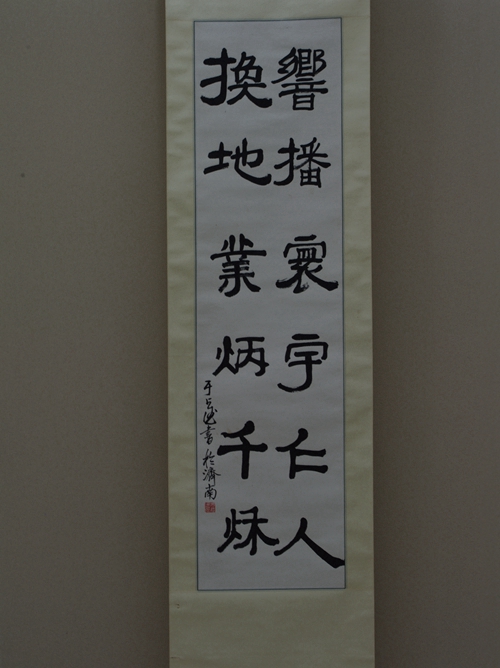 響播寰宇仁人
換地業炳千秌
于書於濟南